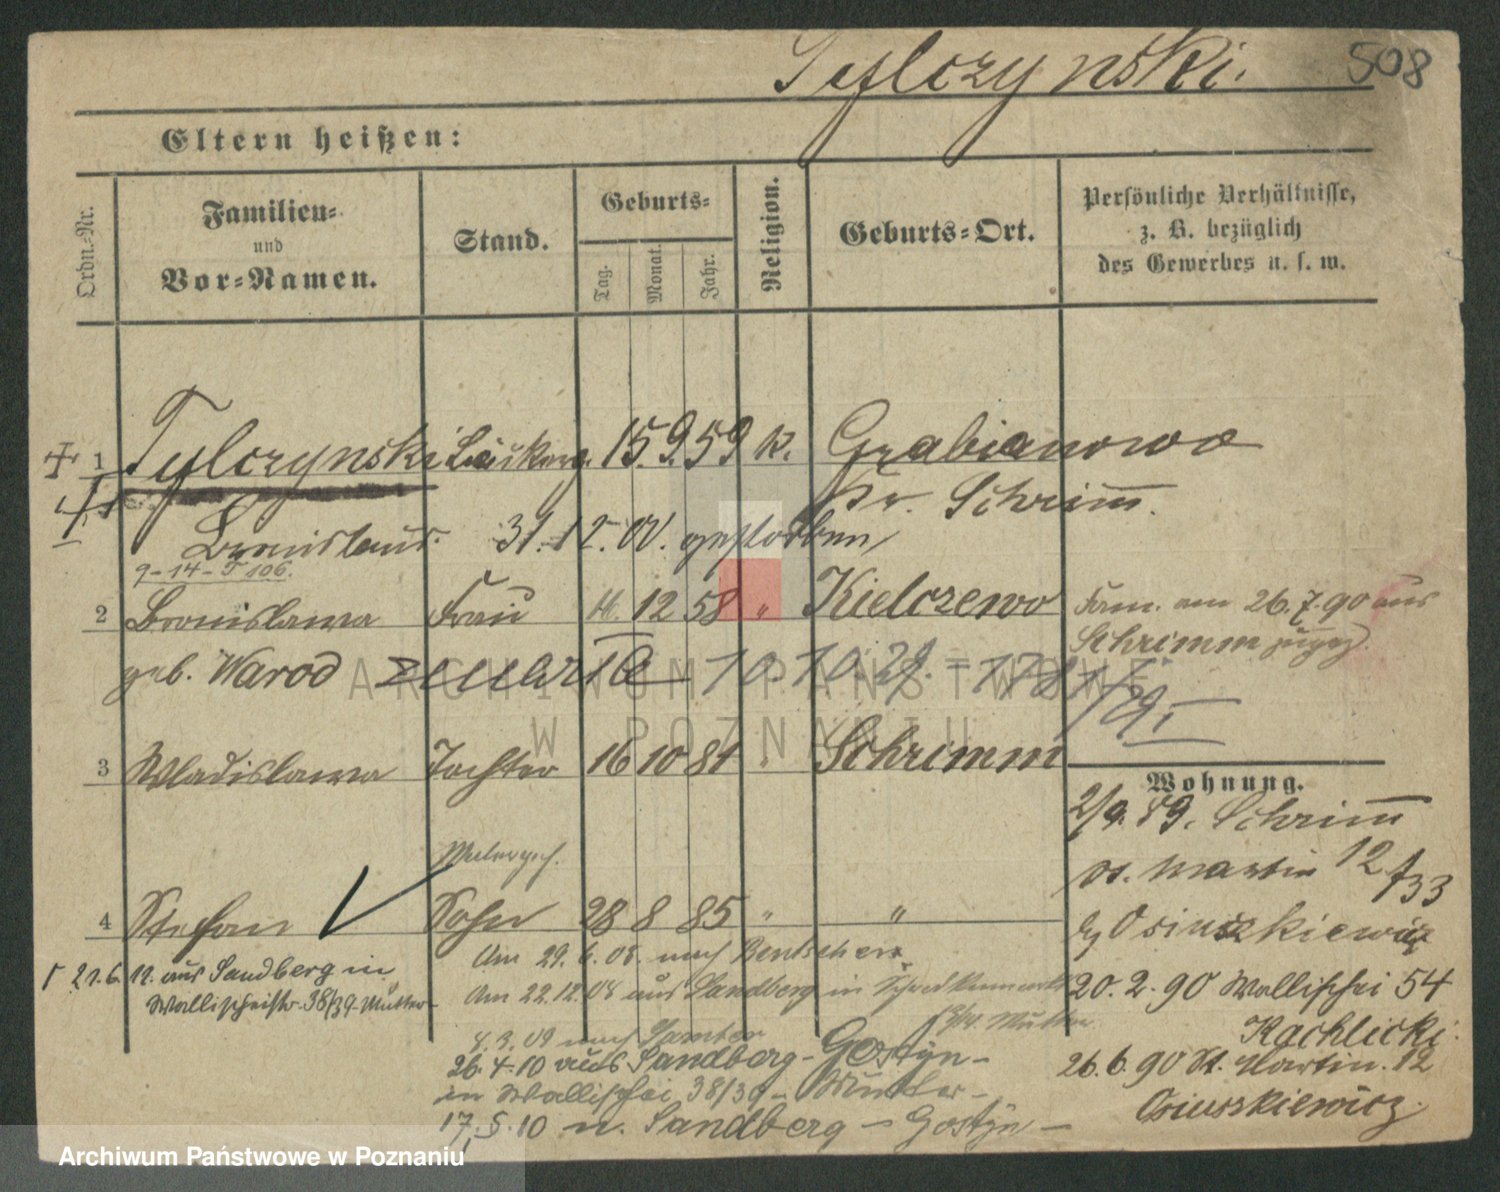 Tylczynski.
508
Eltern heißen:
Ordn.-Nr.
Familien-
und
Vor-Namen.
Stand.
Geburts-
Tag.
Monat.
Jahr.
Religion.
Geburts-Ort.
Persönliche Verhältnisse,
z. B. bezüglich
des Gewerbes u. s. w.
1 Tylczynski 15. 9. 59 k. Grabianowo
Kr. Schrimm.
Bronislaus. 31. 12. 00. gestorben
9-14-T 106.
2 Bronislawa Frau 12 58 " Kielczewo
Fam. am 26.7.90 aus
Schrimm zugez.
geb. Warod 10. 10. 29.
3 Wladislawa Tochter 16 10 81 " Schrimm
Wohnung.
2/9. 89. Schrimm
St. Martin 12
4 Stefan Sohn 28 8 85 " "
b/ Osiuszkiewicz
Am 29. 6. 08. nach Bentschen
21. 6. 12. aus Sandberg in
Wallischeistr. 38/39 Mutter
Am 22.12.08 aus Sandberg in
Mutter
20. 2. 90 Wallischei 54
Kachlicki.
8. 3. 09 nach Samter
26. 4. 10 aus Sandberg - Gostyn -
in Wallischei 38/39 - Mutter -
17. 5. 10 n. Sandberg - Gostyn -
26. 6. 90 St. Martin. 12
Osiuszkiewicz.
ARCHIWUM PAŃSTWOWE
W POZNANIU
Archiwum Państwowe w Poznaniu